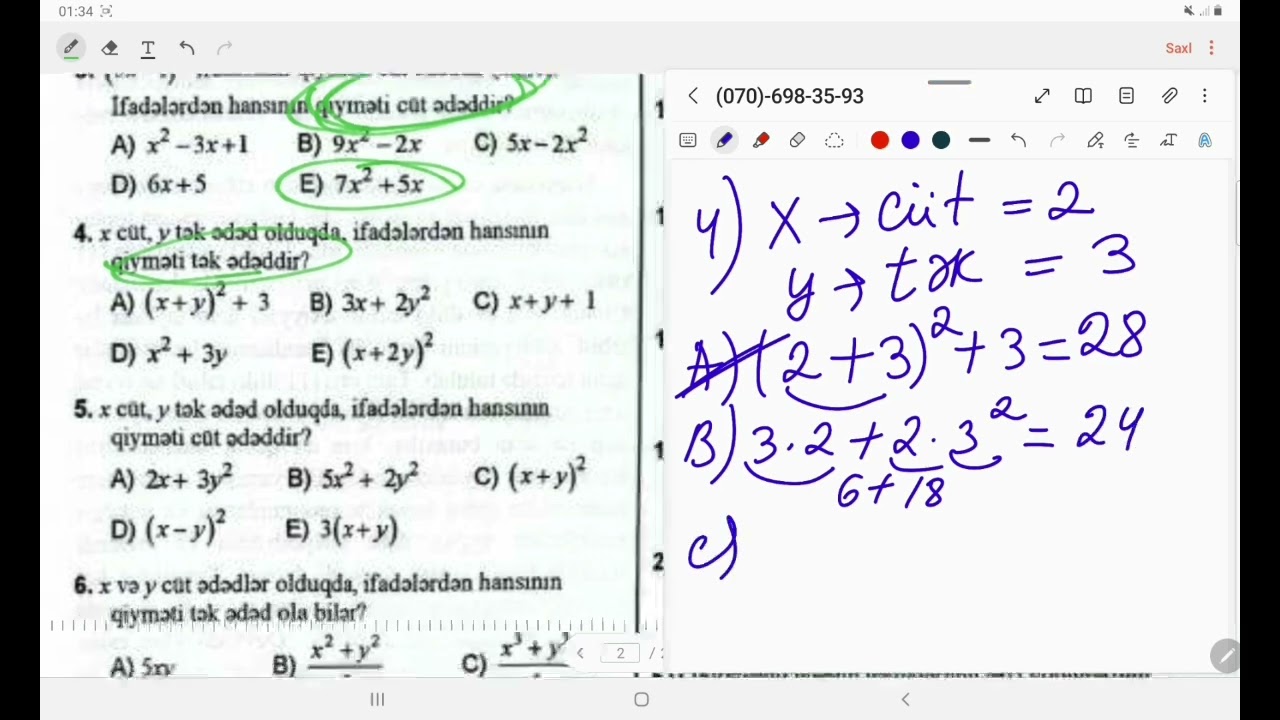 01:34
T
Saxl
Ifadələrdən hansının qiyməti cüt ədəddir?
A) x² −3x+1 B) 9x² − 2x C) 5x − 2x²
D) 6x + 5 E) 7x² + 5x
4. x cüt, y tək ədəd olduqda, ifadələrdən hansının
qiyməti tək ədəddir?
A) (x+y)² + 3 B) 3x + 2y² C) x + y + 1
D) x² + 3y E) (x + 2y)²
5. x cüt, y tək ədəd olduqda, ifadələrdən hansının
qiyməti cüt ədəddir?
A) 2x + 3y² B) 5x² + 2y² C) (x + y)²
D) (x − y)² E) 3(x + y)
6. x və y cüt ədədlər olduqda, ifadələrdən hansının
qiyməti tək ədəd ola bilər?
A) 5xy B) x² + y² C) x³ + y
2
(070)-698-35-93
4) X → cüt = 2
y → tək = 3
A) (2 + 3)² + 3 = 28
B) 3 · 2 + 2 · 3² = 24
6 + 18
C)